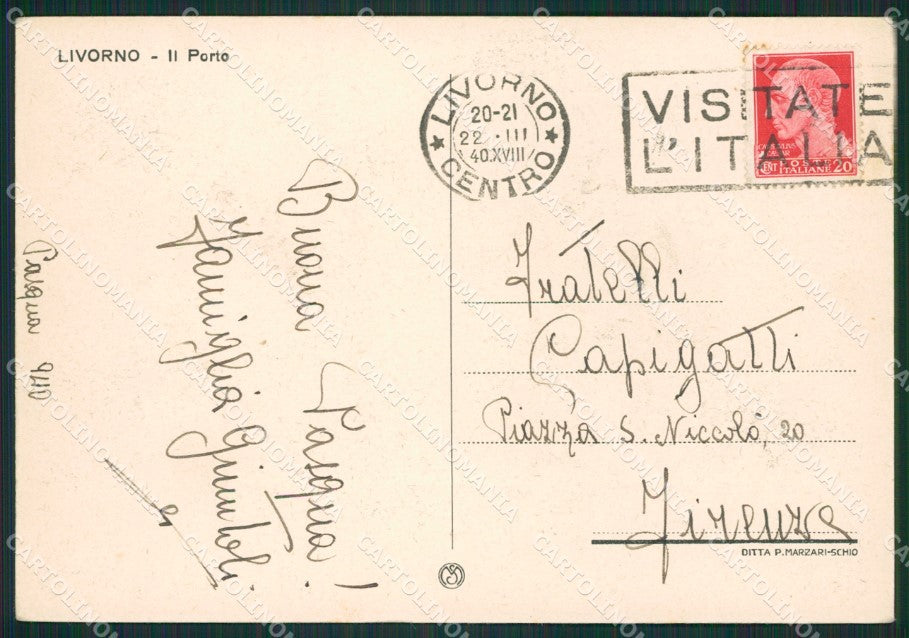 LIVORNO - Il Porto
LIVORNO
20-21
22 · III
40.XVIII
CENTRO
VISITATE
L'ITALIA
POSTE
CENT ITALIANE 20
Buona Pasqua!
Famiglia Giuntoli
Pasqua 940
Fratelli
Capigatti
Piazza S. Niccolò, 20
Firenze
DITTA P. MARZARI-SCHIO
CARTOLINOMANIA